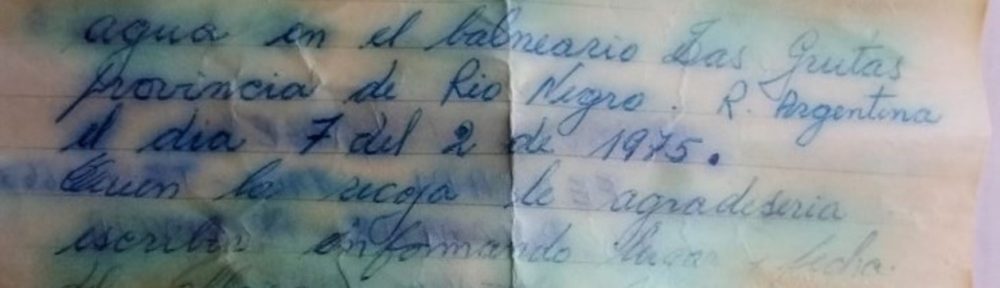 agua en el balneario Las Grutas
provincia de Rio Negro. R. Argentina
el dia 7 del 2 de 1975.
Quien la recoja le agradeseria
escribir informando lugar y fecha.